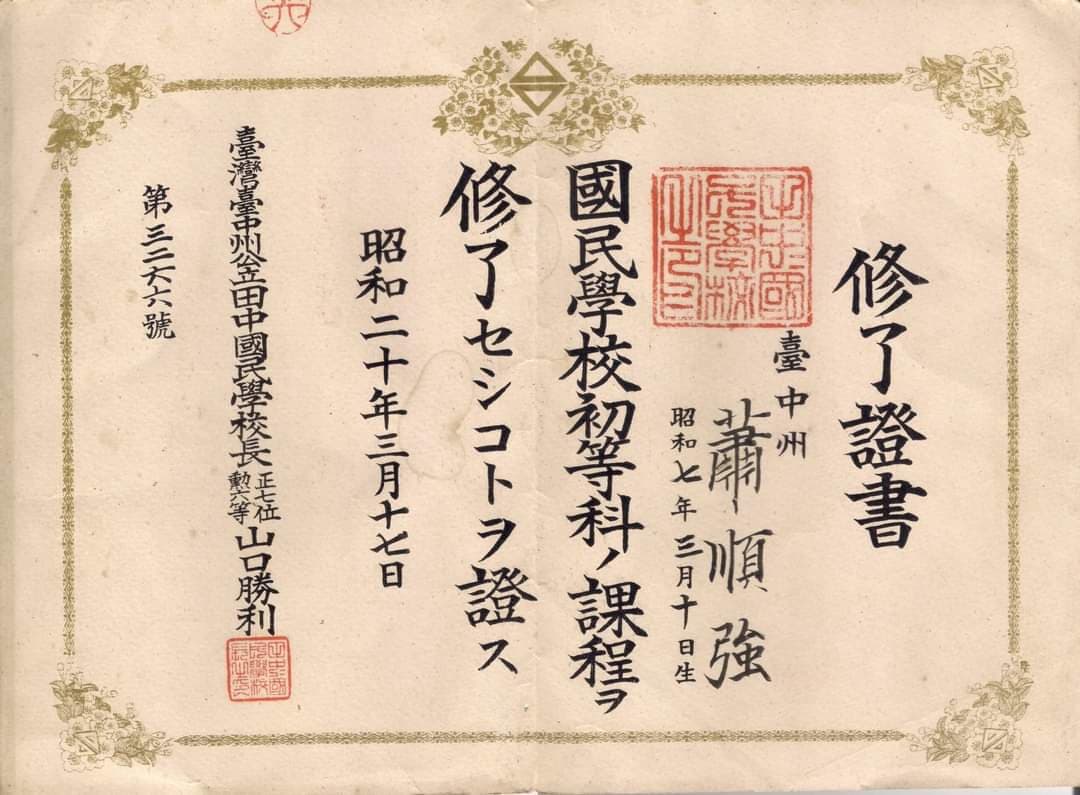 修了證書
臺中州
蕭順強
昭和七年三月十日生
國民學校初等科ノ課程ヲ
修了セシコトヲ證ス
昭和二十年三月十七日
臺灣臺中州公立田中國民學校長
正七位
勲六等
山口勝利
第三二六六號
田中國
民學校
之印
田中國
民學校
長之印